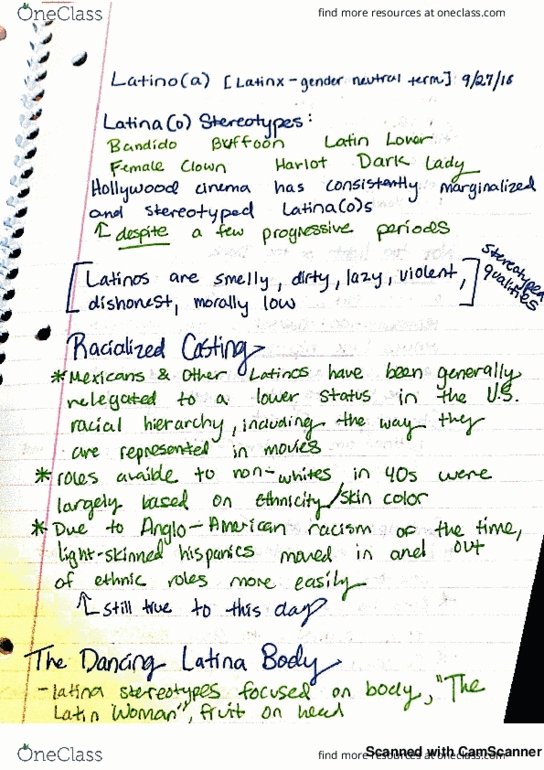 OneClass
find more resources at oneclass.com
Latino(a) [Latinx - gender neutral term] 9/27/18
Latina(o) Stereotypes:
Bandido Buffoon Latin Lover
Female Clown Harlot Dark Lady
Hollywood cinema has consistently marginalized
and stereotyped Latina(o)s
↑ despite a few progressive periods
[Latinos are smelly, dirty, lazy, violent,
dishonest, morally low]
Stereotyped
qualities
Racialized Casting
* Mexicans & other Latinos have been generally
relegated to a lower status in the U.S.
racial hierarchy, including the way they
are represented in movies
* roles availble to non-whites in 40s were
largely based on ethnicity/skin color
* Due to Anglo-American racism of the time,
light-skinned hispanics moved in and out
of ethnic roles more easily
↑ still true to this day
The Dancing Latina Body
- latina stereotypes focused on body, "The
Latin Woman", fruit on head
OneClass
find more resources at oneclass.com
Scanned with CamScanner